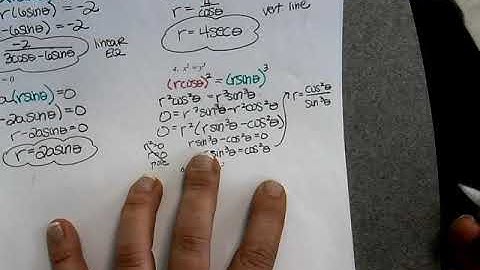 r(6sinθ) = -2
-6sinθ) = -2
-2
3cosθ-6sinθ
linear
EQ
= 0
(rsinθ) = 0
-2arsinθ = 0
r-2asinθ = 0
r = 2asinθ
r = 4/cosθ
vert line
r = 4secθ
4. x² = y³
(rcosθ)² = (rsinθ)³
r²cos²θ = r³sin³θ
0 = r³sin³θ - r²cos²θ
0 = r²(rsin³θ - cos²θ)
r²=0
r=0
rsin³θ - cos²θ = 0
rsin³θ = cos²θ
r = cos²θ/sin³θ